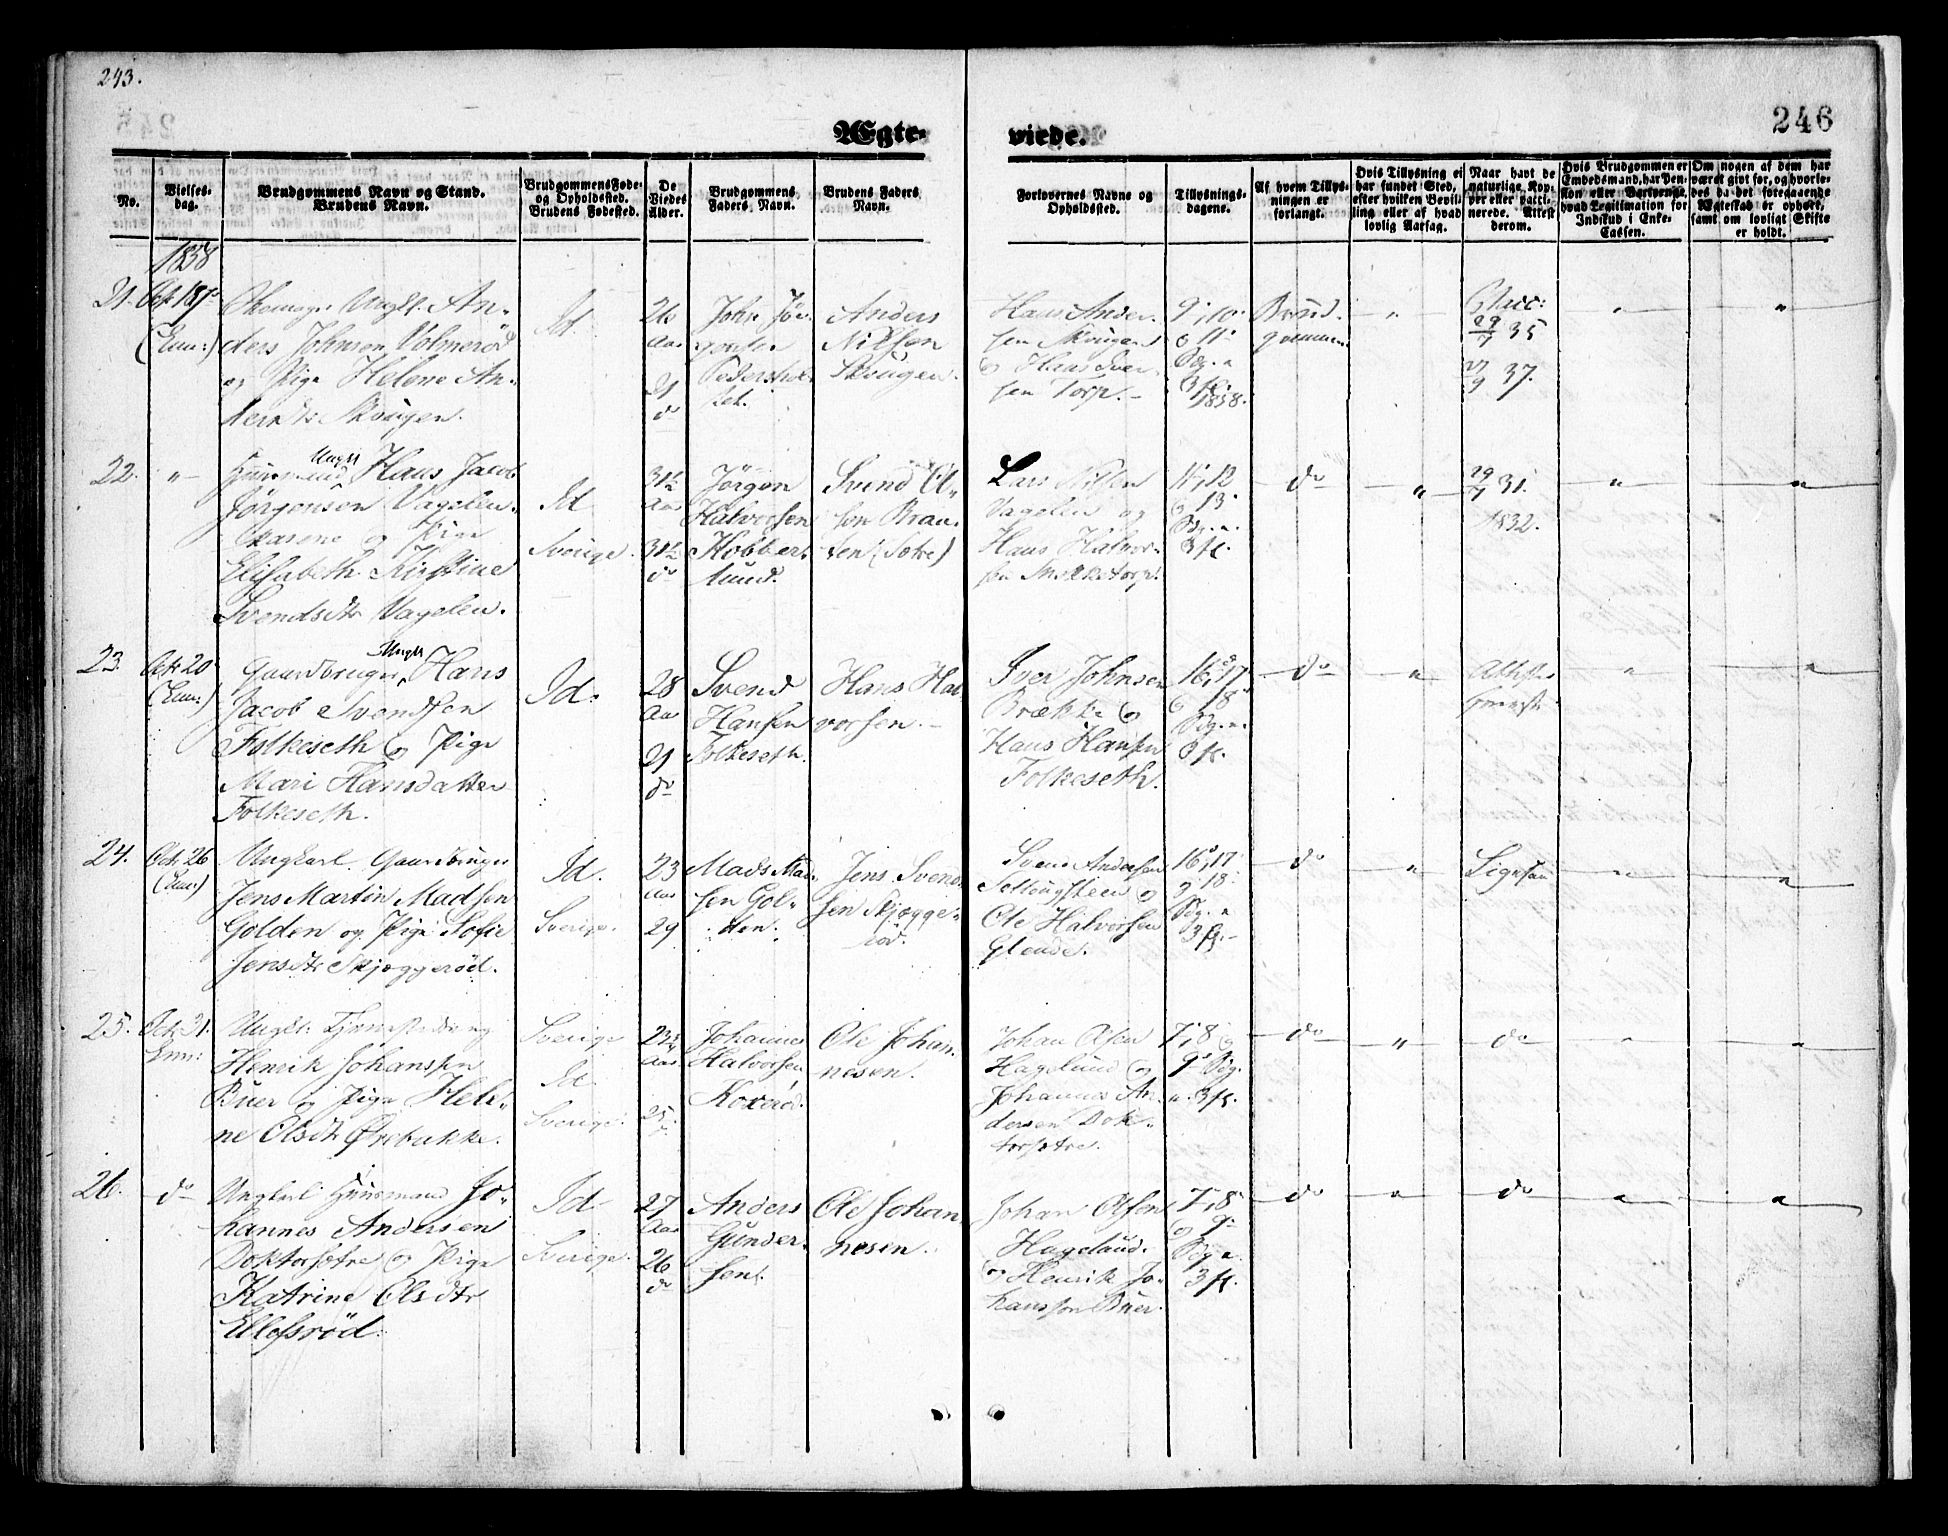 243.
246
Ægte-
viede.
No.
Vielses-
dag.
Brudgommens Navn og Stand.
Brudens Navn.
Brudgommens Føde-
og Opholdssted.
Brudens Fødested.
De
Viedes
Alder.
Brudgommens
Faders Navn.
Brudens Faders
Navn.
Forlovernes Navne og
Opholdssted.
Tillysnings-
dagene.
Af hvem Tillys-
ningen er
forlangt.
Hvis Tillysning ei
har fundet Sted,
efter hvilken Bevil-
ling eller af hvad
lovlig Aarsag.
Naar havt de
naturlige Kop-
per eller vacci-
nerede. Attest
derom.
Hvis Brudgommen er
Embedsmand, har Pen-
sion eller Vartpenge,
hvad Legitimation for
Indskud i Enke-
Cassen.
Om nogen af dem har
været gift før, og hvorle-
des da det foregaaende
Ægteskab er ophørt,
samt om lovligt Skifte
er holdt.
1858
21.
Ungk. An-
ders Johnsen Volmerød
og Pige Helene An-
dersdtr Skougen.
Id.
26
Aar
21
do
John Jør-
gensen
Pedershol-
tet.
Anders
Nilsen
Skougen.
Hans Ander-
sen Skougen
og Hans Iver-
sen Torp.
9, 10
o 11
Sdg. a
3 fr.
1858.
Brud-
gommen
"
Vacc:
29/7 35
27/9 37.
"
"
22.
"
Huusmand Ungk Hans Jacob
Jørgensen Vagelen-
og Pige
Elisabeth Kirstine
Svendsdtr Vagelen.
Id
Sverige.
31½
Aar
31½
do
Jørgen
Halvorsen
Kobber-
lund.
Svend Ol-
sen Brau-
ten (Sotre)
Lars Nilsen
Vagelen og
Hans Halvor-
sen
11, 12
o 13
Sdg. a.
3 fr.
do
"
29/7 31.
1832.
"
"
23.
Oct 20
(Enn:)
Gaardbruger Ungk Hans
Jacob Svendsen
Folkeseth og Pige
Mari Hansdatter
Folkeseth.
Id.
28
Aar
21
do
Svend
Hansen
Folkeseth.
Hans Hal-
vorsen.
Iver Johnsen
Brække og
Hans Hansen
Folkeseth.
16, 17
o 18
Sdg. a.
3 fr.
do
"
"
"
24.
Oct 26
(Enn:)
Ungkarl Gaardbruger
Jens Martin Madsen
Golden og Pige Sofie
Jensdtr Skjæggerød.
Id.
Sverige.
23
Aar
29
Mads Mad-
sen Gol-
den.
Jens Svend-
sen Skjægge-
rød.
Svend Andersen
og
Ole Halvorsen
Glende.
16, 17
o 18
Sdg. a
3 fr.
do
"
"
"
25.
Oct 31.
Enn:
Ungk.
Henrik Johansen
Buer og Pige Hele-
ne Olsdtr Ørebakke.
Sverige
Id.
Sverige.
Aar
Johannes
Halvorsen
Koxerød.
Ole Johan-
nesen.
Johan Olsen
Hagelund og
Johannes An-
dersen Dok-
torsotre.
7, 8 og
9 Sdg.
a. 3 fr.
do
"
do
"
"
26.
do
Ungkarl Huusmand Jo-
hannes Andersen
Doktorsotre og Pige
Katrine Olsdtr
Ellefsrød.
Id
Sverige.
27
Aar
26
do
Anders
Gunder-
sen.
Ole Johan-
nesen.
Johan Olsen
Hagelund.
og Henrik Jo-
hansson Buer.
7, 8
o 9
Sdg. a.
3 fr.
do
"
do
"
"